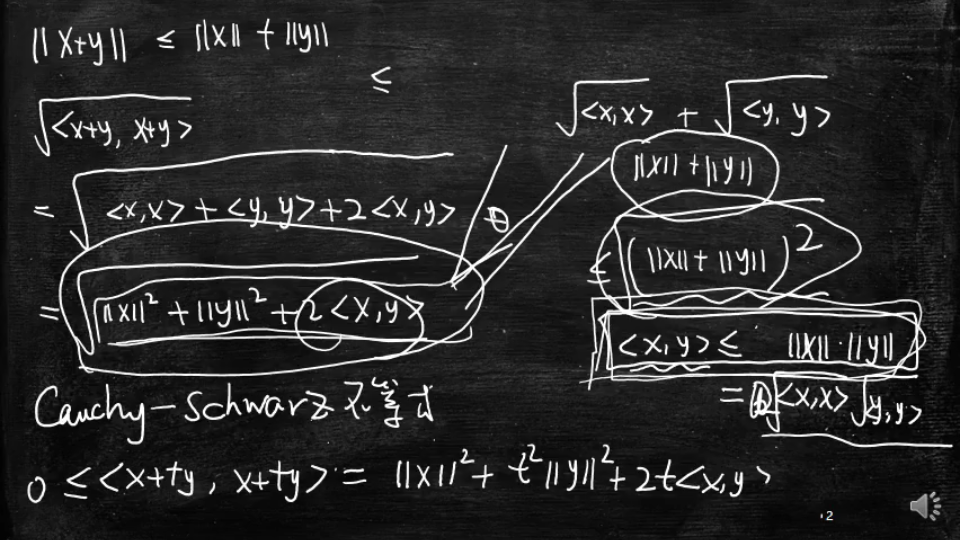 ||x+y|| ≤ ||x|| + ||y||
≤
√<x+y, x+y>
√<x,x> + √<y, y>
||x|| + ||y||
= √<x,x> + <y,y> + 2<x,y>
≤ √(||x|| + ||y||)²
= √||x||² + ||y||² + 2<x,y>
<x,y> ≤ ||x||·||y||
= √<x,x> √<y,y>
Cauchy-Schwarz 不等式
0 ≤ <x+ty, x+ty> = ||x||² + t²||y||² + 2t<x,y>
2